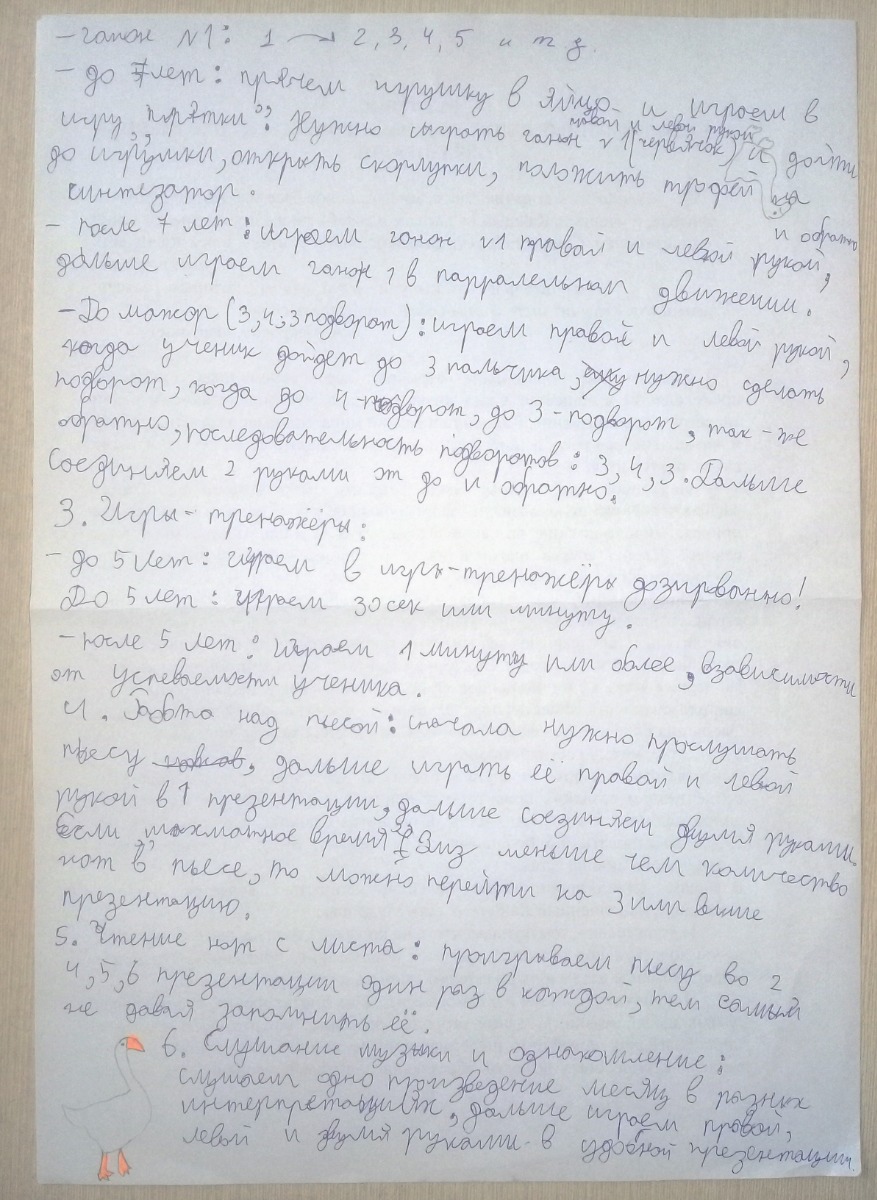 - ганон №1: 1 → 2, 3, 4, 5 и т д.
- до 7лет: прячем игрушку в яйцо и играем в
игру "прятки": Нужно сыграть ганон №1 (червячок) и дойти
правой и левой рукой
до игрушки, открыть скорлупки, положить трофей на
синтезатор.
- после 7 лет: играем ганон №1 правой и левой рукой,
и обратно
дальше играем ганон 1 в парралельном движении.
- До мажор (3,4,3 подворот): играем правой и левой рукой,
когда ученик дойдет до 3 пальчика, нужно сделать
подворот, когда до 4-подворот, до 3-подворот, так-же
обратно, последовательность подворотов: 3, 4, 3. Дальше
соединяем 2 руками от до и обратно.
3. Игры-тренажёры:
- до 5 лет: играем в игры-тренажёры дозированно!
До 5 лет: играем 30сек или минуту.
- после 5 лет: играем 1 минуту или более, взависимости
от успеваемости ученика.
4. Работа над пьесой: сначала нужно прослушать
пьесу, дальше играть её правой и левой
рукой в 1 презентации, дальше соединяем двумя руками.
Если шахматное время меньше чем количество
нот в пьесе, то можно перейти на 3 или выше
презентацию.
5. Чтение нот с листа: проигрываем пьесу во 2
4, 5, 6 презентации один раз в каждой, тем самым
не давая запомнить её.
6. Слушание музыки и ознакомление:
слушаем одно произведение месяц в разных
интерпретациях, дальше играем правой,
левой и двумя руками в удобной презентации.